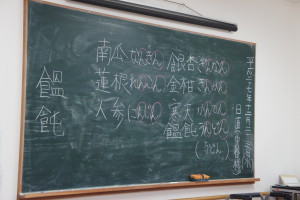 平成二十七年十二月
日直
南瓜 なんきん 銀杏 ぎんなん
蓮根 れんこん 金柑 きんかん
人参 にんじん 寒天 かんてん
饂飩 うんどん
(うどん)
饂飩